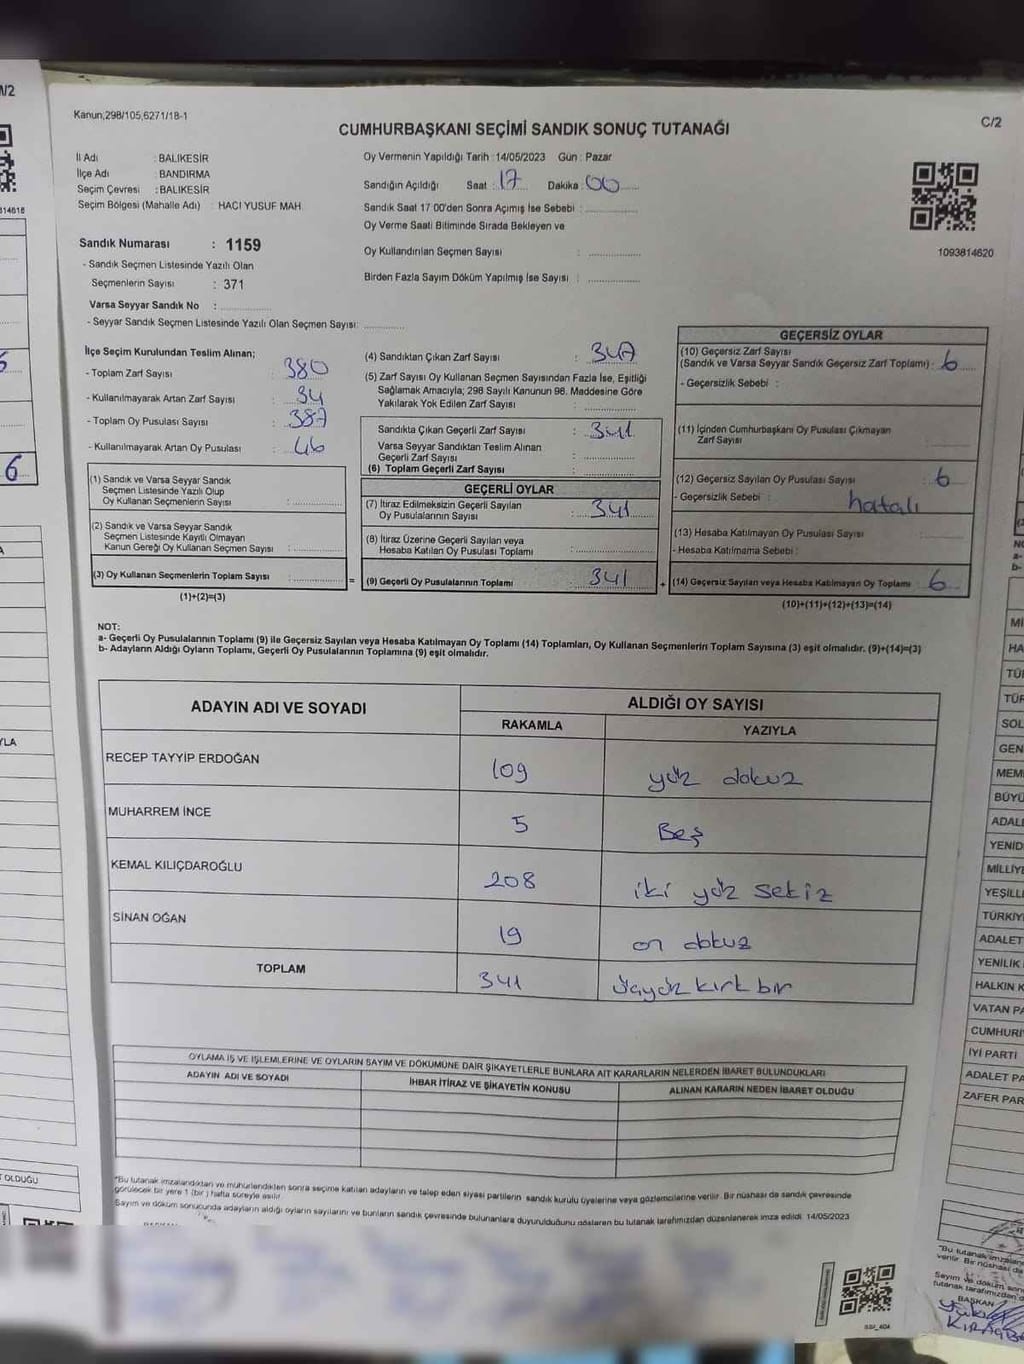 Kanun,298/105,6271/18-1
C/2
CUMHURBAŞKANI SEÇİMİ SANDIK SONUÇ TUTANAĞI
İl Adı : BALIKESİR
İlçe Adı : BANDIRMA
Seçim Çevresi : BALIKESİR
Seçim Bölgesi (Mahalle Adı) : HACI YUSUF MAH.
Sandık Numarası : 1159
- Sandık Seçmen Listesinde Yazılı Olan
Seçmenlerin Sayısı : 371
Varsa Seyyar Sandık No :
- Seyyar Sandık Seçmen Listesinde Yazılı Olan Seçmen Sayısı:
Oy Vermenin Yapıldığı Tarih :14/05/2023 Gün : Pazar
Sandığın Açıldığı Saat : 17 Dakika : 00
Sandık Saat 17:00'den Sonra Açımış İse Sebebi :
Oy Verme Saati Bitiminde Sırada Bekleyen ve
Oy Kullandırılan Seçmen Sayısı :
Birden Fazla Sayım Döküm Yapılmış İse Sayısı :
1093814620
İlçe Seçim Kurulundan Teslim Alınan;
- Toplam Zarf Sayısı : 380
- Kullanılmayarak Artan Zarf Sayısı : 34
- Toplam Oy Pusulası Sayısı : 387
- Kullanılmayarak Artan Oy Pusulası : 46
(1) Sandık ve Varsa Seyyar Sandık
Seçmen Listesinde Yazılı Olup
Oy Kullanan Seçmenlerin Sayısı :
(2) Sandık ve Varsa Seyyar Sandık
Seçmen Listesinde Kayıtlı Olmayan
Kanun Gereği Oy Kullanan Seçmen Sayısı :
(3) Oy Kullanan Seçmenlerin Toplam Sayısı :
(1)+(2)=(3)
(4) Sandıktan Çıkan Zarf Sayısı : 347
(5) Zarf Sayısı Oy Kullanan Seçmen Sayısından Fazla İse, Eşitliği
Sağlamak Amacıyla; 298 Sayılı Kanunun 98. Maddesine Göre
Yakılarak Yok Edilen Zarf Sayısı :
Sandıkta Çıkan Geçerli Zarf Sayısı : 341
Varsa Seyyar Sandıktan Teslim Alınan
Geçerli Zarf Sayısı :
(6) Toplam Geçerli Zarf Sayısı :
GEÇERLİ OYLAR
(7) İtiraz Edilmeksizin Geçerli Sayılan
Oy Pusulalarının Sayısı : 341
(8) İtiraz Üzerine Geçerli Sayılan veya
Hesaba Katılan Oy Pusulası Toplamı :
= (9) Geçerli Oy Pusulalarının Toplamı : 341
GEÇERSİZ OYLAR
(10) Geçersiz Zarf Sayısı
(Sandık ve Varsa Seyyar Sandık Geçersiz Zarf Toplamı) : 6
- Geçersizlik Sebebi :
(11) İçinden Cumhurbaşkanı Oy Pusulası Çıkmayan
Zarf Sayısı :
(12) Geçersiz Sayılan Oy Pusulası Sayısı : 6
- Geçersizlik Sebebi : hatalı
(13) Hesaba Katılmayan Oy Pusulası Sayısı :
- Hesaba Katılmama Sebebi :
+ (14) Geçersiz Sayılan veya Hesaba Katılmayan Oy Toplamı : 6
(10)+(11)+(12)+(13)=(14)
NOT:
a- Geçerli Oy Pusulalarının Toplamı (9) ile Geçersiz Sayılan veya Hesaba Katılmayan Oy Toplamı (14) Toplamları, Oy Kullanan Seçmenlerin Toplam Sayısına (3) eşit olmalıdır. (9)+(14)=(3)
b- Adayların Aldığı Oyların Toplamı, Geçerli Oy Pusulalarının Toplamına (9) eşit olmalıdır.
ADAYIN ADI VE SOYADI
ALDIĞI OY SAYISI
RAKAMLA YAZIYLA
RECEP TAYYİP ERDOĞAN 109 yüz dokuz
MUHARREM İNCE 5 Beş
KEMAL KILIÇDAROĞLU 208 iki yüz sekiz
SİNAN OĞAN 19 on dokuz
TOPLAM 341 üçyüz kırk bir
OYLAMA İŞ VE İŞLEMLERİNE VE OYLARIN SAYIM VE DÖKÜMÜNE DAİR ŞİKAYETLERLE BUNLARA AİT KARARLARIN NELERDEN İBARET BULUNDUKLARI
ADAYIN ADI VE SOYADI İHBAR İTİRAZ VE ŞİKAYETİN KONUSU ALINAN KARARIN NEDEN İBARET OLDUĞU
*Bu tutanak imzalandıktan ve mühürlendikten sonra seçime katılan adayların ve talep eden siyasi partilerin sandık kurulu üyelerine veya gözlemcilerine verilir. Bir nüshası da sandık çevresinde
görülecek bir yere 1 (bir ) hafta süreyle asılır.
Sayım ve döküm sonucunda adayların aldığı oyların sayılarını ve bunların sandık çevresinde bulunanlara duyurulduğunu gösteren bu tutanak tarafımızdan düzenlenerek imza edildi. 14/05/2023
SOL
GEN
MEM
BÜYÜ
ADALE
YENİD
MİLLİYE
YEŞİLL
TÜRKİY
ADALET
YENİLİK
HALKIN K
VATAN PA
CUMHURİ
İYİ PARTİ
ADALET PA
ZAFER PAR
BAŞKAN